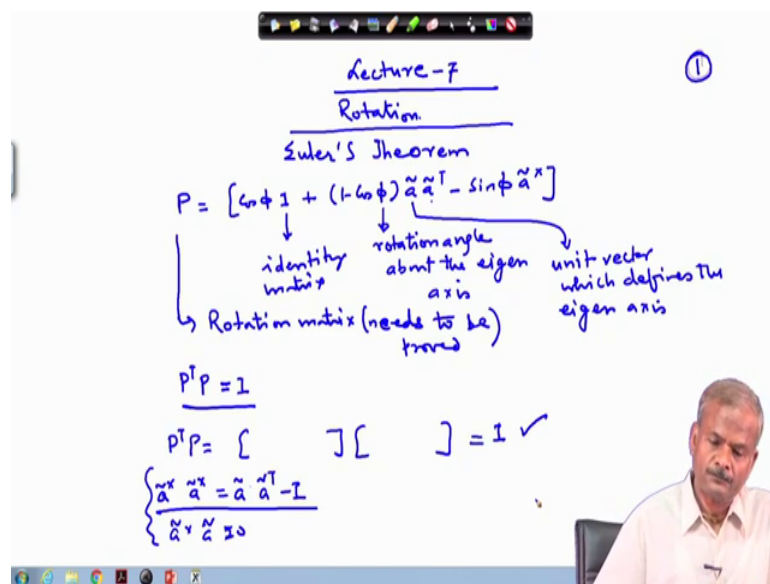 Lecture-7
①
Rotation.
Euler's Theorem
P = [cosϕ I + (1-cosϕ) ã ãᵀ - sinϕ ãˣ]
identity matrix
rotation angle about the eigen axis
unit vector which defines the eigen axis
Rotation matrix (needs to be proved)
PᵀP = I
PᵀP = [ ] [ ] = I ✓
ãˣ ãˣ = ã ãᵀ - I
ãˣ ã = 0